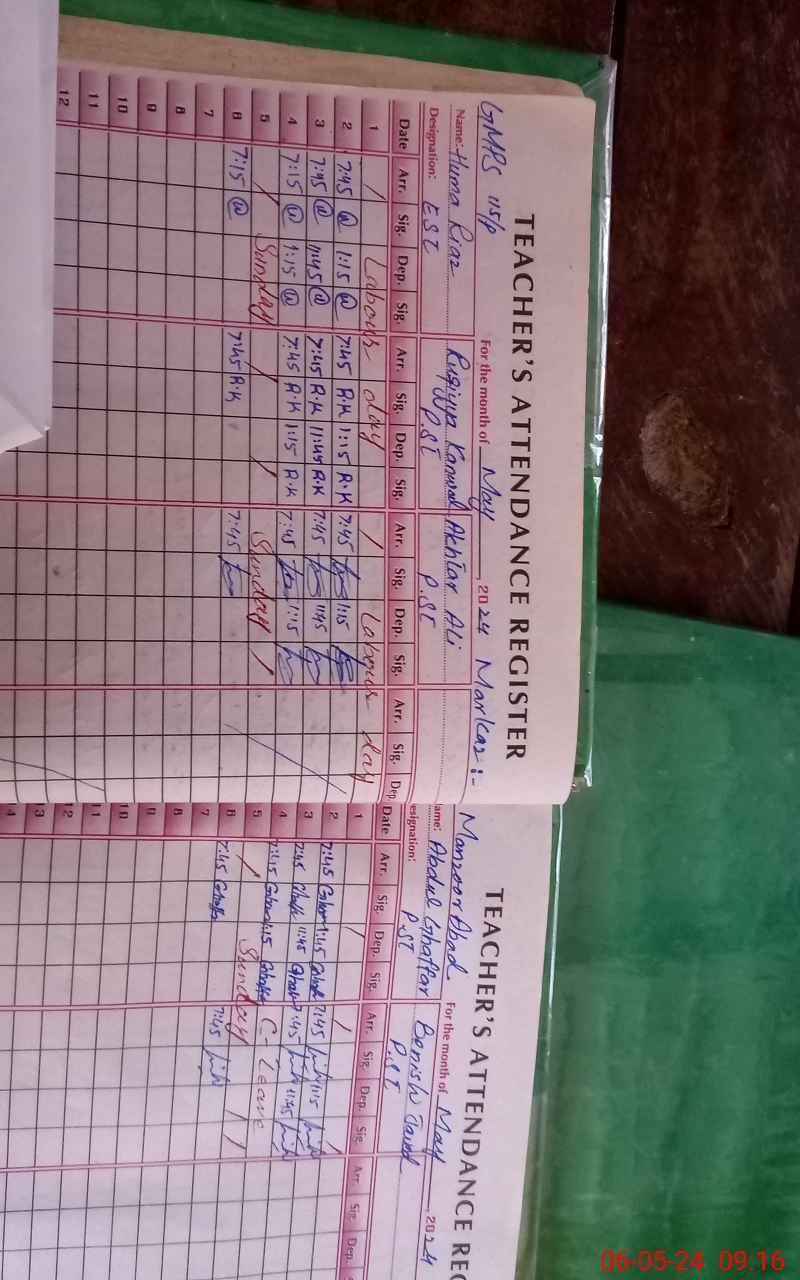 TEACHER'S ATTENDANCE REGISTER
GMPS 115/P For the month of May, 2024 Markaz :-
Name: Huma Riaz Ruqiyya Kanwal Akhtar Ali
Designation: EST P.ST P.ST
Date Arr. Sig. Dep. Sig. Arr. Sig. Dep. Sig. Arr. Sig. Dep. Sig. Arr. Sig. Dep.
1 Labour day Labour day
2 7:45 1:15 7:45 R.K 1:15 R.K 7:45 1:15
3 7:45 11:45 7:45 R.K 11:45 R.K 7:45 11:45
4 7:15 1:15 7:45 R.K 1:15 R.K 7:45 1:15
5 Sunday Sunday
6 7:15 7:45 R.K 7:45
7
8
9
10
11
12
TEACHER'S ATTENDANCE REG
Manzoor Abad For the month of May, 2024
ame: Abdul Ghaffar Benish Javed
esignation: P.ST P.ST
Date Arr. Sig. Dep. Sig. Arr. Sig. Dep. Sig. Arr. Sig. Dep.
1
2 7:45 1:45 7:45 1:15
3 7:45 11:45 7:45 11:45
4 7:45 1:15 C-Leave
5 Sunday
6 7:45 7:45
7
8
9
10
11
12
13
06-05-24 09:16